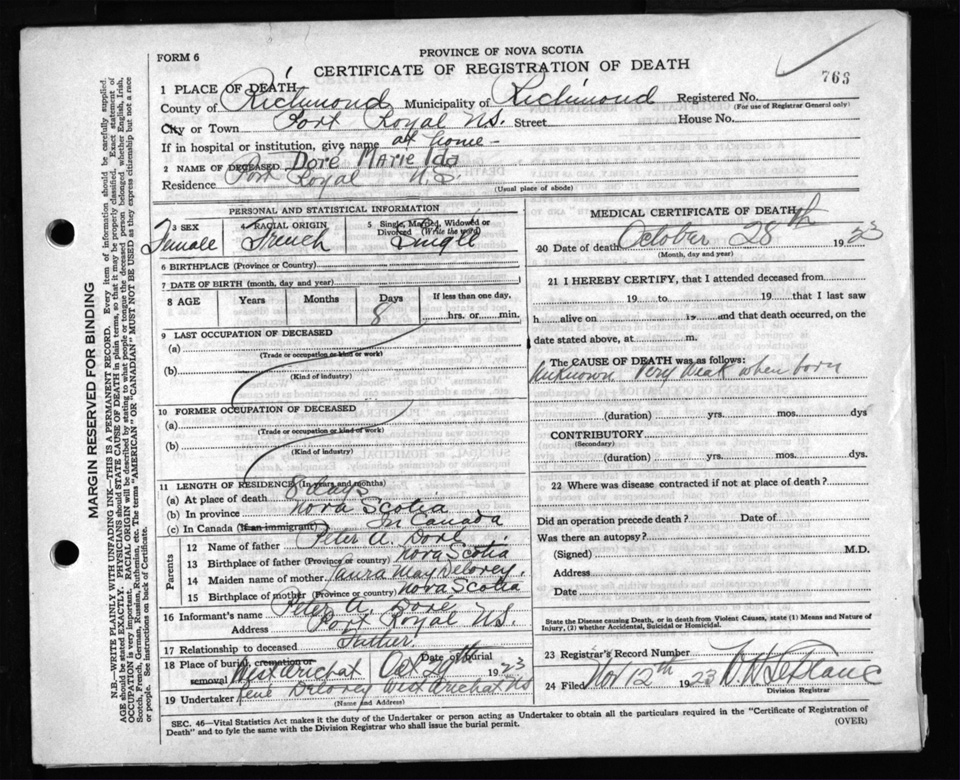 PROVINCE OF NOVA SCOTIA
FORM 6
CERTIFICATE OF REGISTRATION OF DEATH
763
1 PLACE OF DEATH
County of Richmond Municipality of Richmond Registered No.
(For use of Registrar General only)
City or Town Port Royal N.S. Street House No.
If in hospital or institution, give name at home -
2 NAME OF DECEASED Doré Marie Ida
Residence Port Royal N.S.
(Usual place of abode)
PERSONAL AND STATISTICAL INFORMATION
3 SEX 4 RACIAL ORIGIN 5 Single, Married, Widowed or Divorced (Write the word)
Female French Single
6 BIRTHPLACE (Province or Country)
7 DATE OF BIRTH (month, day and year)
8 AGE Years Months Days If less than one day,
8 hrs. or min.
9 LAST OCCUPATION OF DECEASED
(a)
(Trade or occupation or kind or work)
(b)
(Kind of industry)
10 FORMER OCCUPATION OF DECEASED
(a)
(Trade or occupation or kind of work)
(b)
(Kind of industry)
11 LENGTH OF RESIDENCE (In years and months)
(a) At place of death 8 days
(b) In province Nova Scotia
(c) In Canada (If an immigrant) In Canada
Parents
12 Name of father Peter A. Doré
13 Birthplace of father (Province or country) Nova Scotia
14 Maiden name of mother Laura May Delorey.
15 Birthplace of mother (Province or country) Nova Scotia
16 Informant's name Peter A. Doré
Address Port Royal N.S.
17 Relationship to deceased Father.
18 Place of burial, cremation or removal West Arichat Date of burial Oct 29th 1923
19 Undertaker René Delorey West Arichat NS
(Name and Address)
MEDICAL CERTIFICATE OF DEATH
20 Date of death October 28th 1923
(Month, day and year)
21 I HEREBY CERTIFY, that I attended deceased from
19 to 19 that I last saw
h alive on 19 and that death occurred, on
date stated above, at m.
The CAUSE OF DEATH was as follows:
Unknown Very weak when born
(duration) yrs. mos. dys
CONTRIBUTORY
(Secondary)
(duration) yrs. mos. dys.
22 Where was disease contracted if not at place of death?
Did an operation precede death? Date of
Was there an autopsy?
(Signed) M.D.
Address
Date
State the Disease causing Death, or in death from Violent Causes, state (1) Means and Nature of Injury, (2) whether Accidental, Suicidal or Homicidal.
23 Registrar's Record Number
24 Filed Nov 12th 1923 LeBlanc
Division Registrar
SEC. 46—Vital Statistics Act makes it the duty of the Undertaker or person acting as Undertaker to obtain all the particulars required in the "Certificate of Registration of
Death" and to fyle the same with the Division Registrar who shall issue the burial permit.
(OVER)
MARGIN RESERVED FOR BINDING
N.B.—WRITE PLAINLY WITH UNFADING INK—THIS IS A PERMANENT RECORD. Every item of information should be carefully supplied.
AGE should be stated EXACTLY. PHYSICIANS should STATE CAUSE OF DEATH in plain terms, so that it may be properly classified. Exact statement of
OCCUPATION is very important. RACIAL ORIGIN will be described by stating to what people or tongue the deceased person belonged whether English, Irish,
Scotch, French, German, Russian, Ruthenian, etc. The terms "AMERICAN" OR "CANADIAN" MUST NOT BE USED as they express citizenship but not a race
or people. See instructions on back of Certificate.